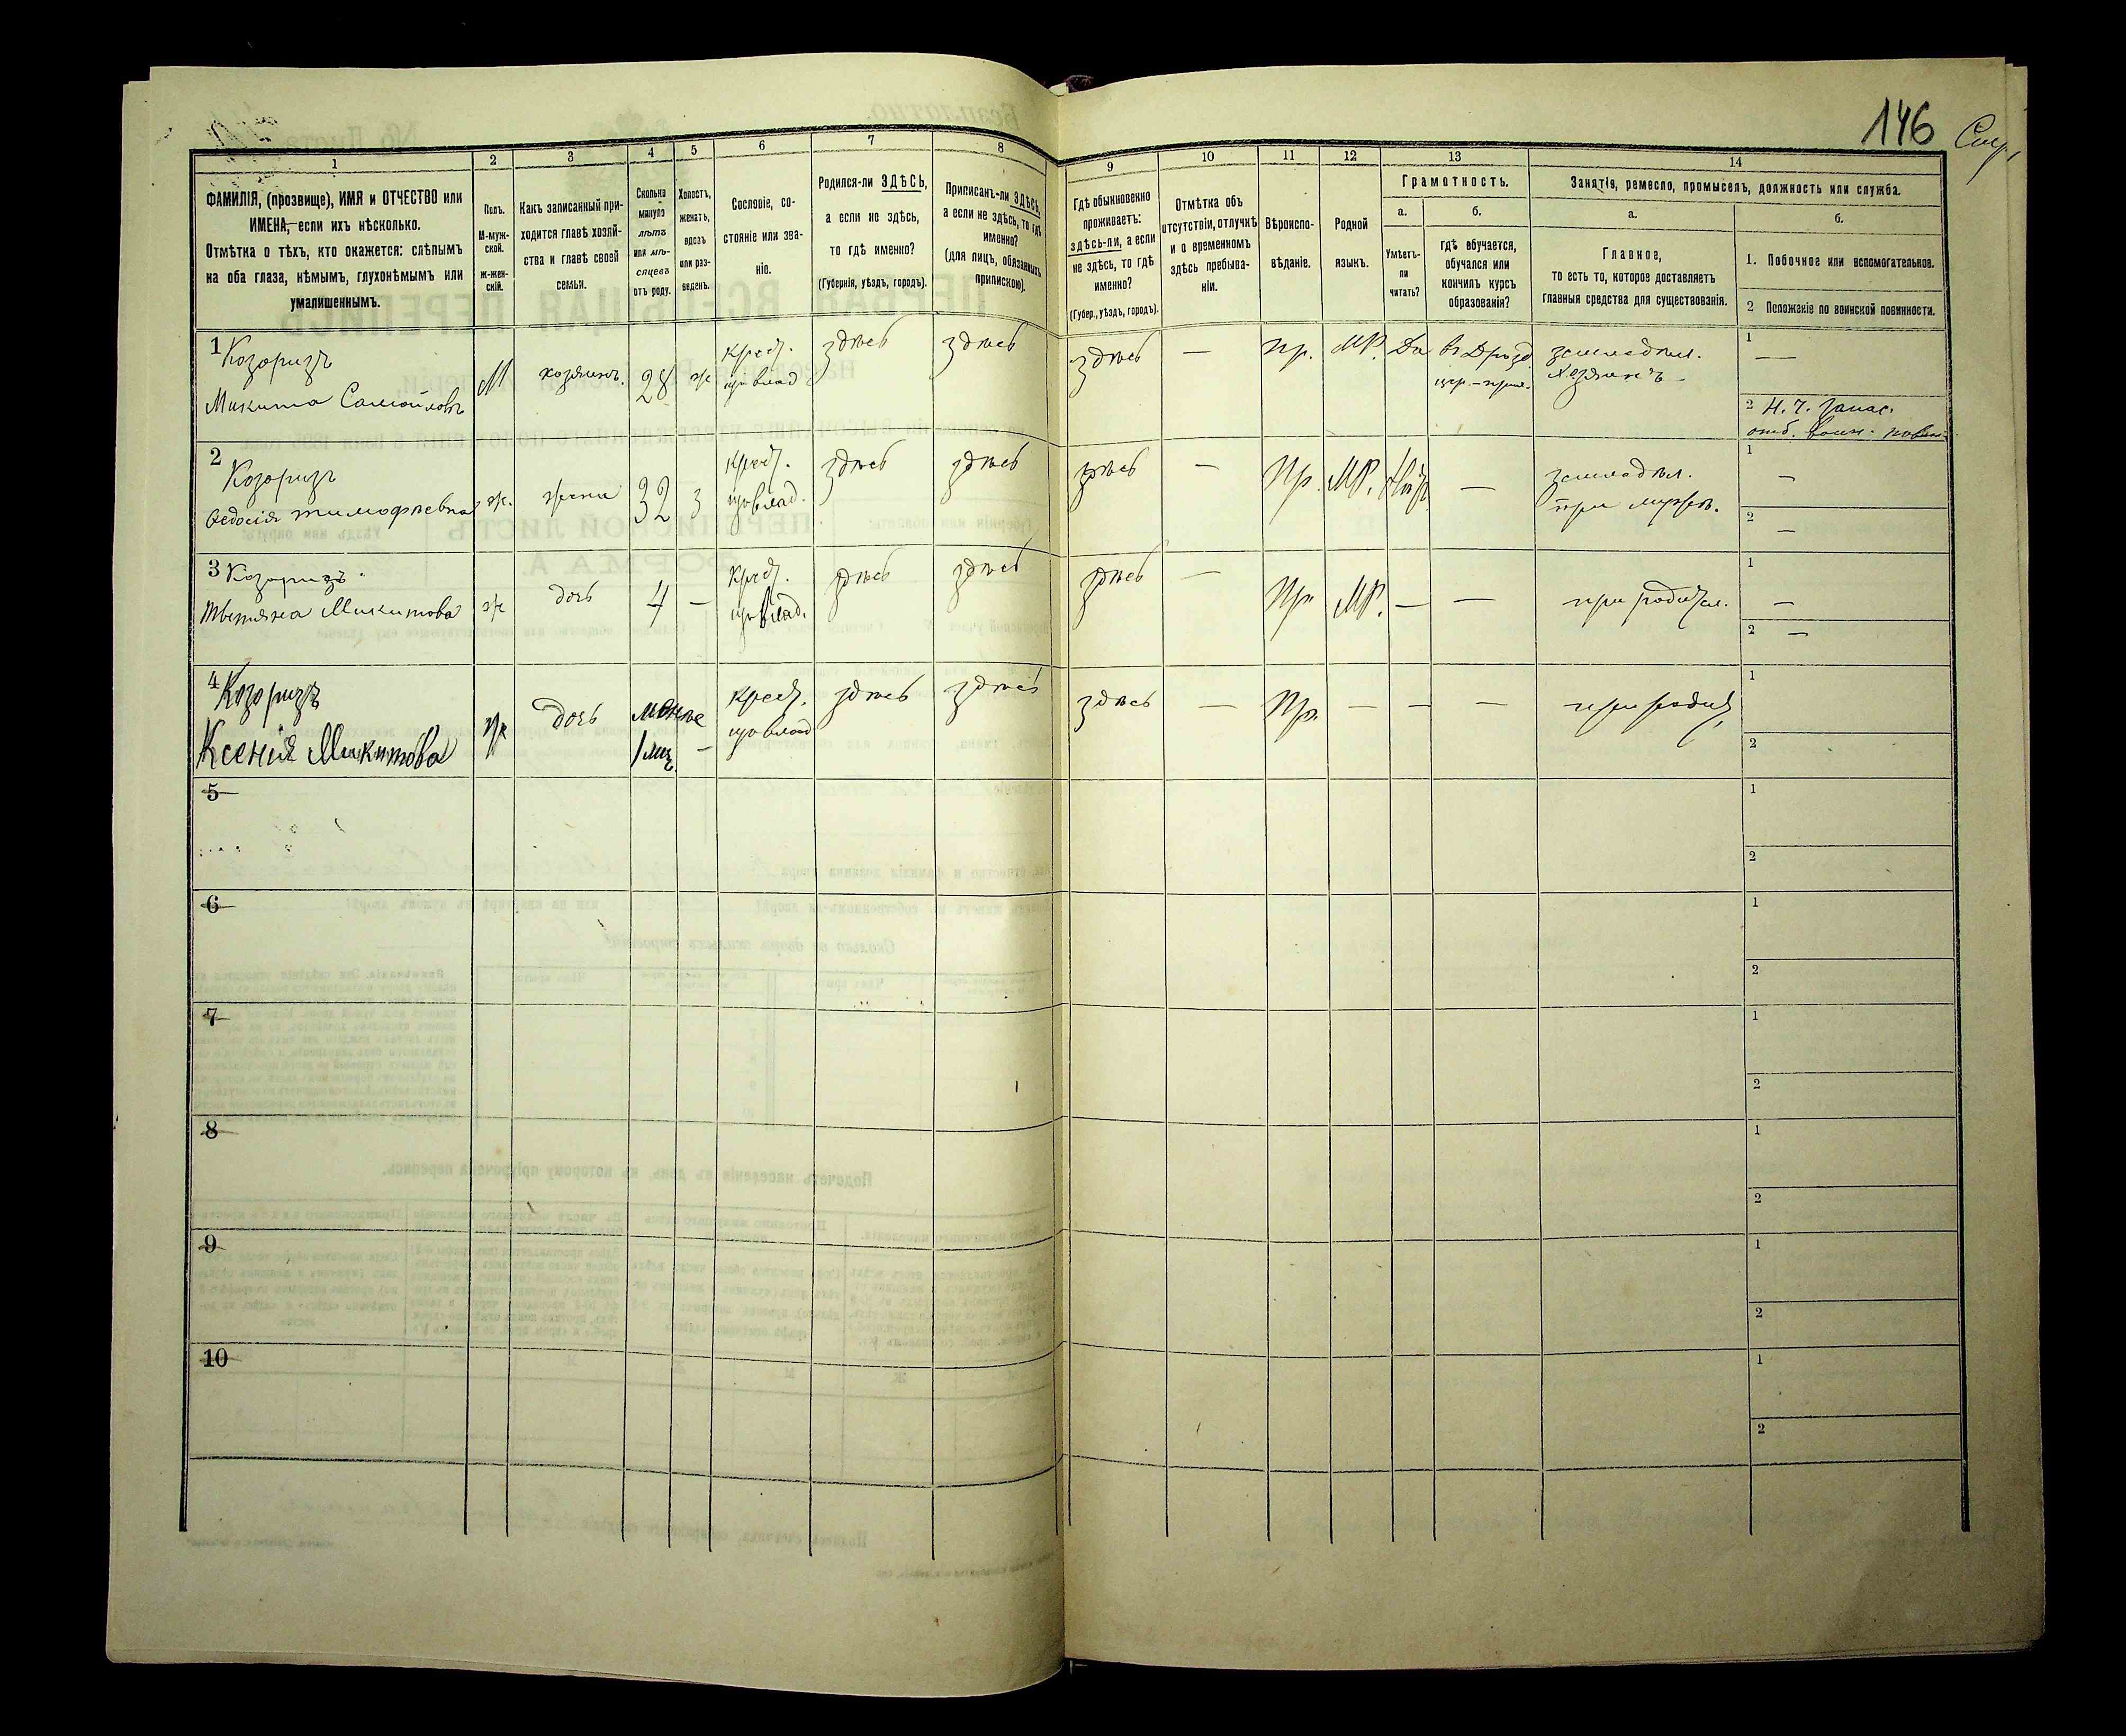 146
1
ФАМИЛІЯ, (прозвище), ИМЯ и ОТЧЕСТВО или
ИМЕНА, если ихъ нѣсколько.
Отмѣтка о тѣхъ, кто окажется: слѣпымъ
на оба глаза, нѣмымъ, глухонѣмымъ или
умалишеннымъ.
2
Полъ.
М-муж-
ской.
ж-жен-
скій.
3
Какъ записанный при-
ходится главѣ хозяй-
ства и главѣ своей
семьи.
4
Сколько
минуло
лѣтъ
или мѣ-
сяцевъ
отъ роду.
5
Холостъ,
женатъ,
вдовъ
или раз-
веденъ.
6
Сословіе, со-
стояніе или зва-
ніе.
7
Родился-ли ЗДѢСЬ,
а если не здѣсь,
то гдѣ именно?
(Губернія, уѣздъ, городъ).
8
Приписанъ-ли ЗДѢСЬ,
а если не здѣсь, то гдѣ
именно?
(для лицъ, обязанныхъ
припискою).
9
Гдѣ обыкновенно
проживаетъ:
здѣсь-ли, а если
не здѣсь, то гдѣ
именно?
(Губер., уѣздъ, городъ).
10
Отмѣтка объ
отсутствіи, отлучкѣ
и о временномъ
здѣсь пребыва-
ніи.
11
Вѣроиспо-
вѣданіе.
12
Родной
языкъ.
13
Грамотность.
а.
Умѣетъ-
ли
читать?
б.
гдѣ обучается,
обучался или
кончилъ курсъ
образованія?
14
Занятія, ремесло, промыселъ, должность или служба.
а.
Главное,
то есть то, которое доставляетъ
главныя средства для существованія.
б.
1. Побочное или вспомогательное.
2 Положеніе по воинской повинности.
1 Козоризъ
Микита Самойловъ
М
хозяинъ.
28
ж
Крест.
здѣсь
здѣсь
здѣсь
—
Пр.
МР.
Да
земледѣл.
хозяинъ
1
—
2 Н. ч. запас.
отб. воин. повин.
2
Козоризъ
Ѳедосія Тимофѣевна
ж.
жена
32
з
Крест.
здѣсь
здѣсь
здѣсь
—
Пр.
МР.
—
земледѣл.
при мужѣ.
1
—
2
—
3 Козоризъ
Тетяна Микитова
ж
дочь
4
—
Крест.
здѣсь
здѣсь
здѣсь
—
Пр
МР.
—
—
при родител.
1
—
2 —
4 Козоризъ
Ксенія Микитова
ж
дочь
менѣе
1 мц.
—
Крест.
здѣсь
здѣсь
здѣсь
—
Пр.
—
—
—
при родит.
1
2
5
1
2
6
1
2
7
1
2
8
1
2
9
1
2
10
1
2